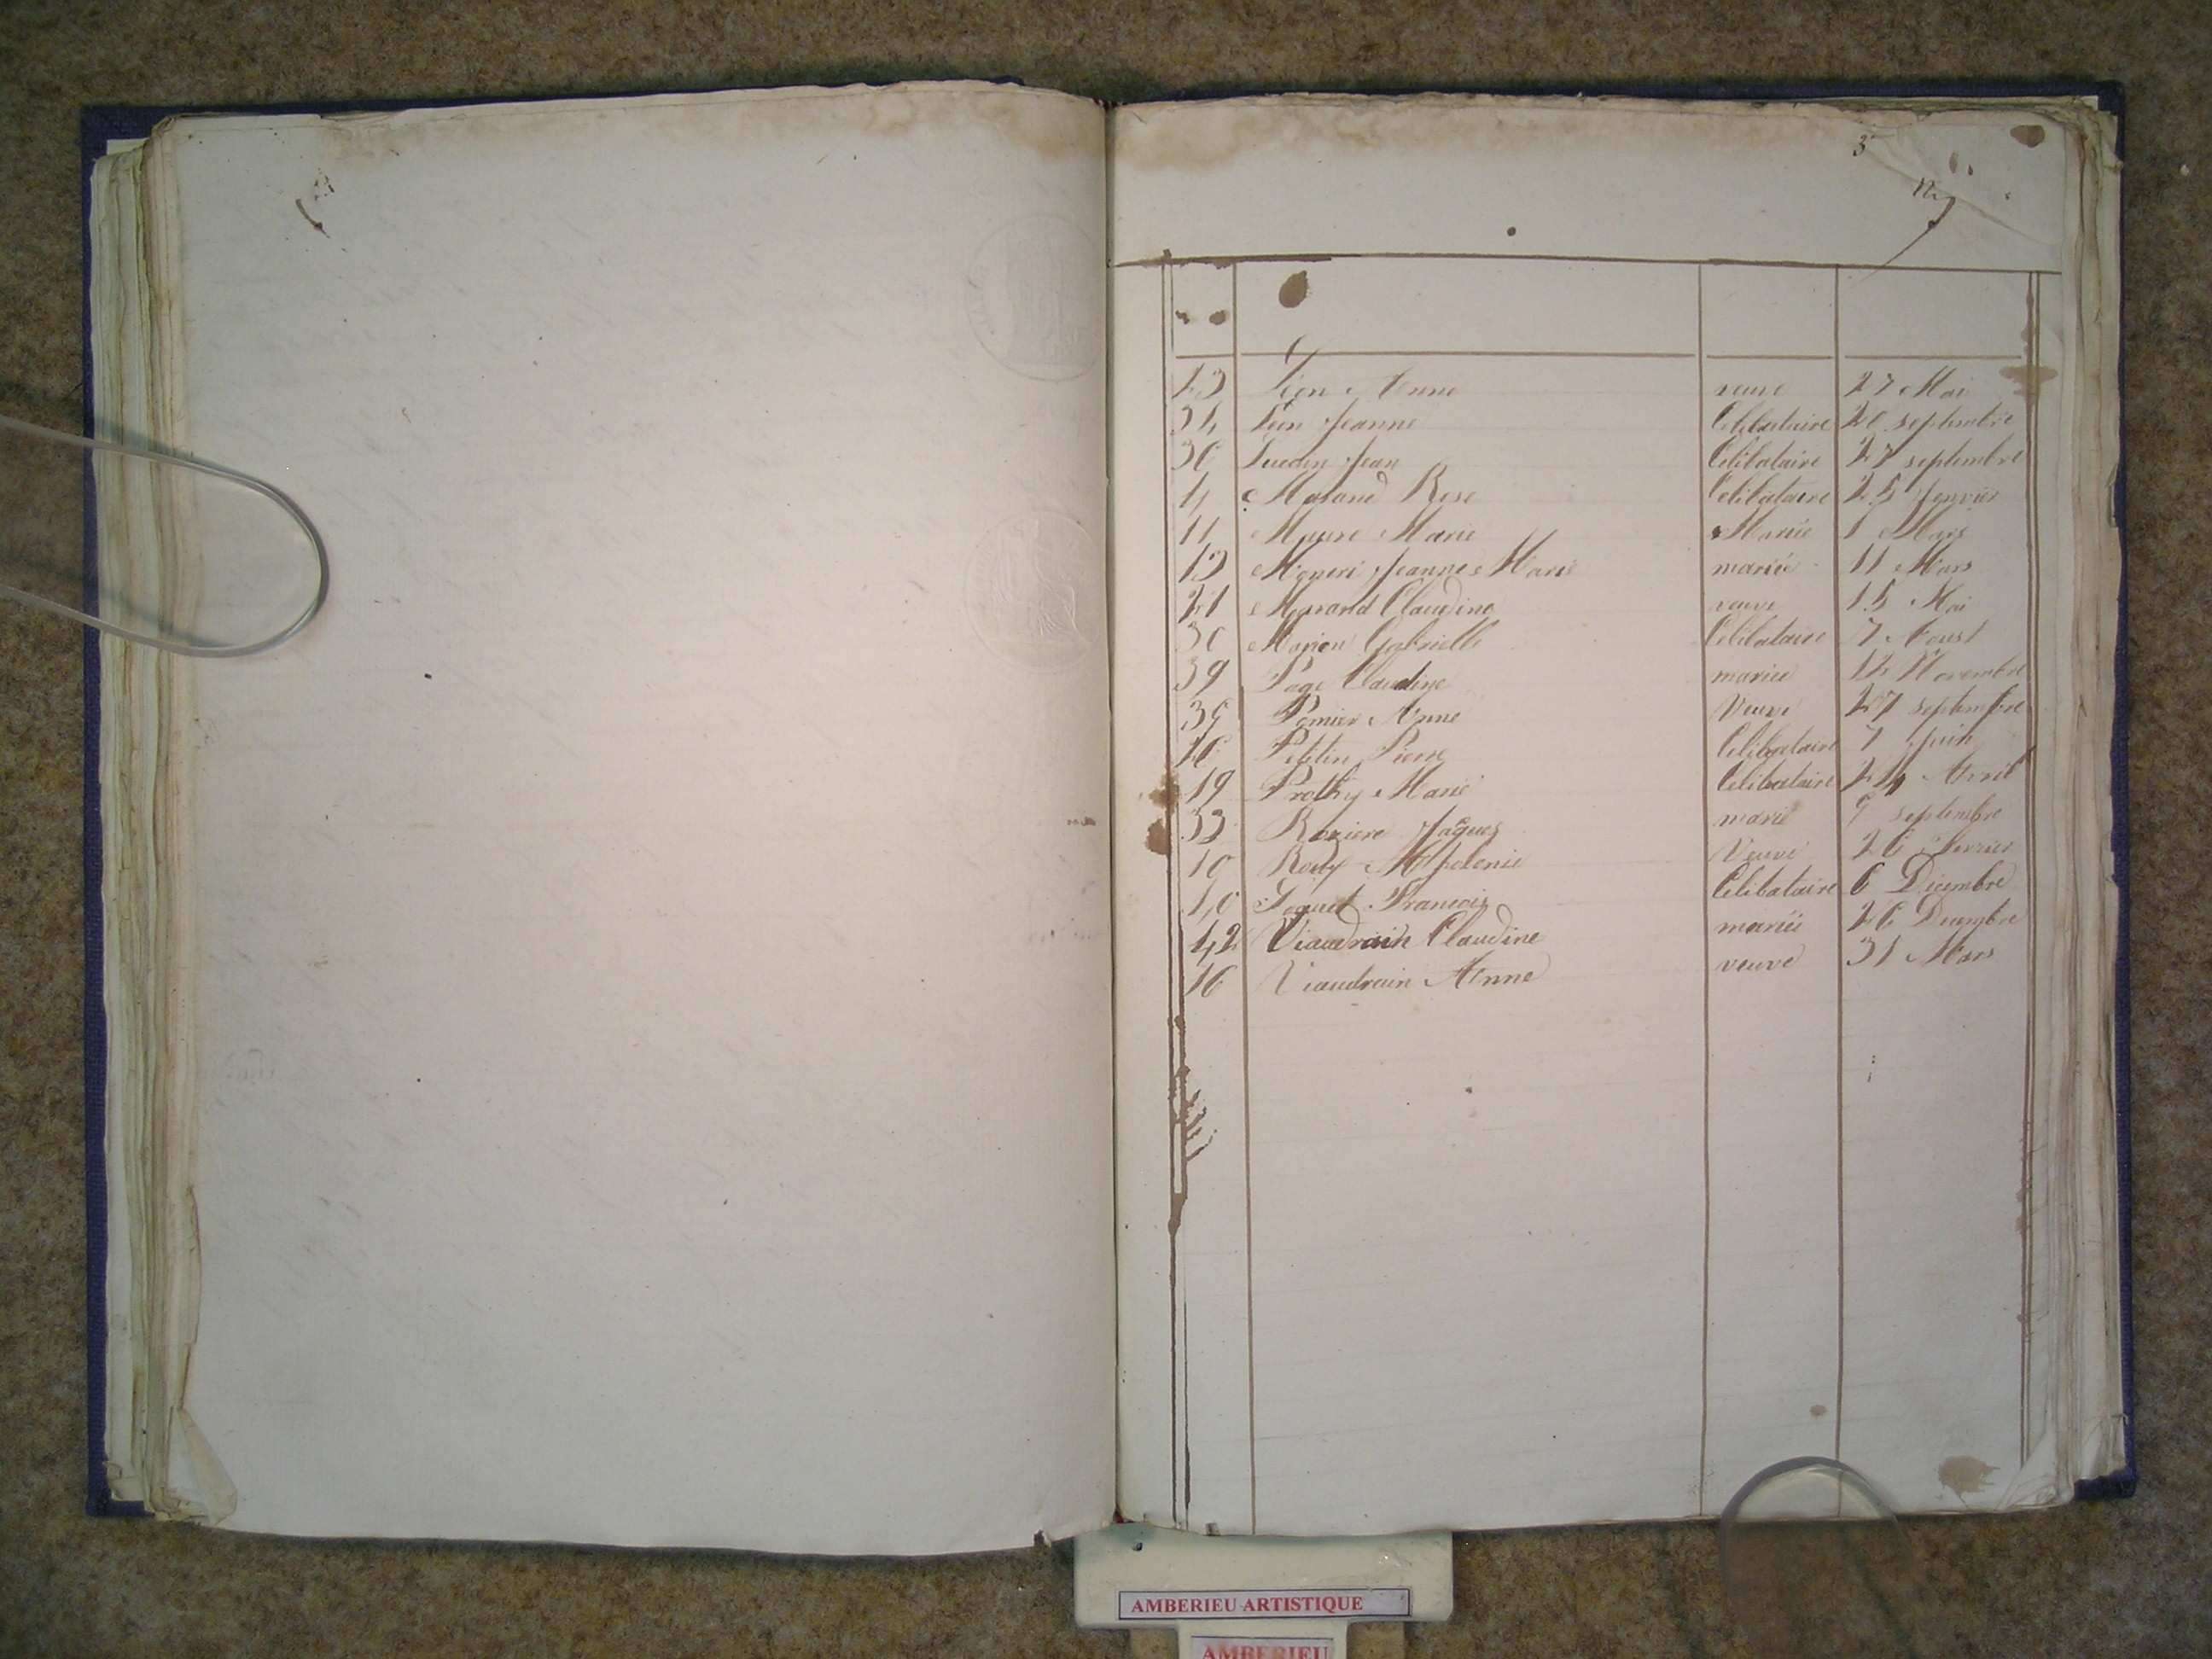 3
23 Léon Anne veuve 27 Mai
34 Léon Jeanne Célibataire 20 septembre
36 Jean Célibataire 27 septembre
4 Rose Célibataire 25 Janvier
11 Marie Mariée 1 Mars
13 Jeanne Marie mariée 11 Mars
21 Morand Claudine veuve 15 Mai
30 Gabrielle Célibataire 7 Aoust
39 Page Claudine mariée 12 Novembre
35 Pomier Anne Veuve 27 septembre
26 Petitin Pierre Célibataire 7 Juin
19 Prothy Marie Célibataire 24 Avril
33 Jaques marié 9 septembre
10 Roux Veuve 26 Fevrier
40 François Célibataire 6 Décembre
42 Viaudrain Claudine mariée 26 Décembre
16 Viaudrain Anne veuve 31 Mars
AMBERIEU ARTISTIQUE
AMBERIEU